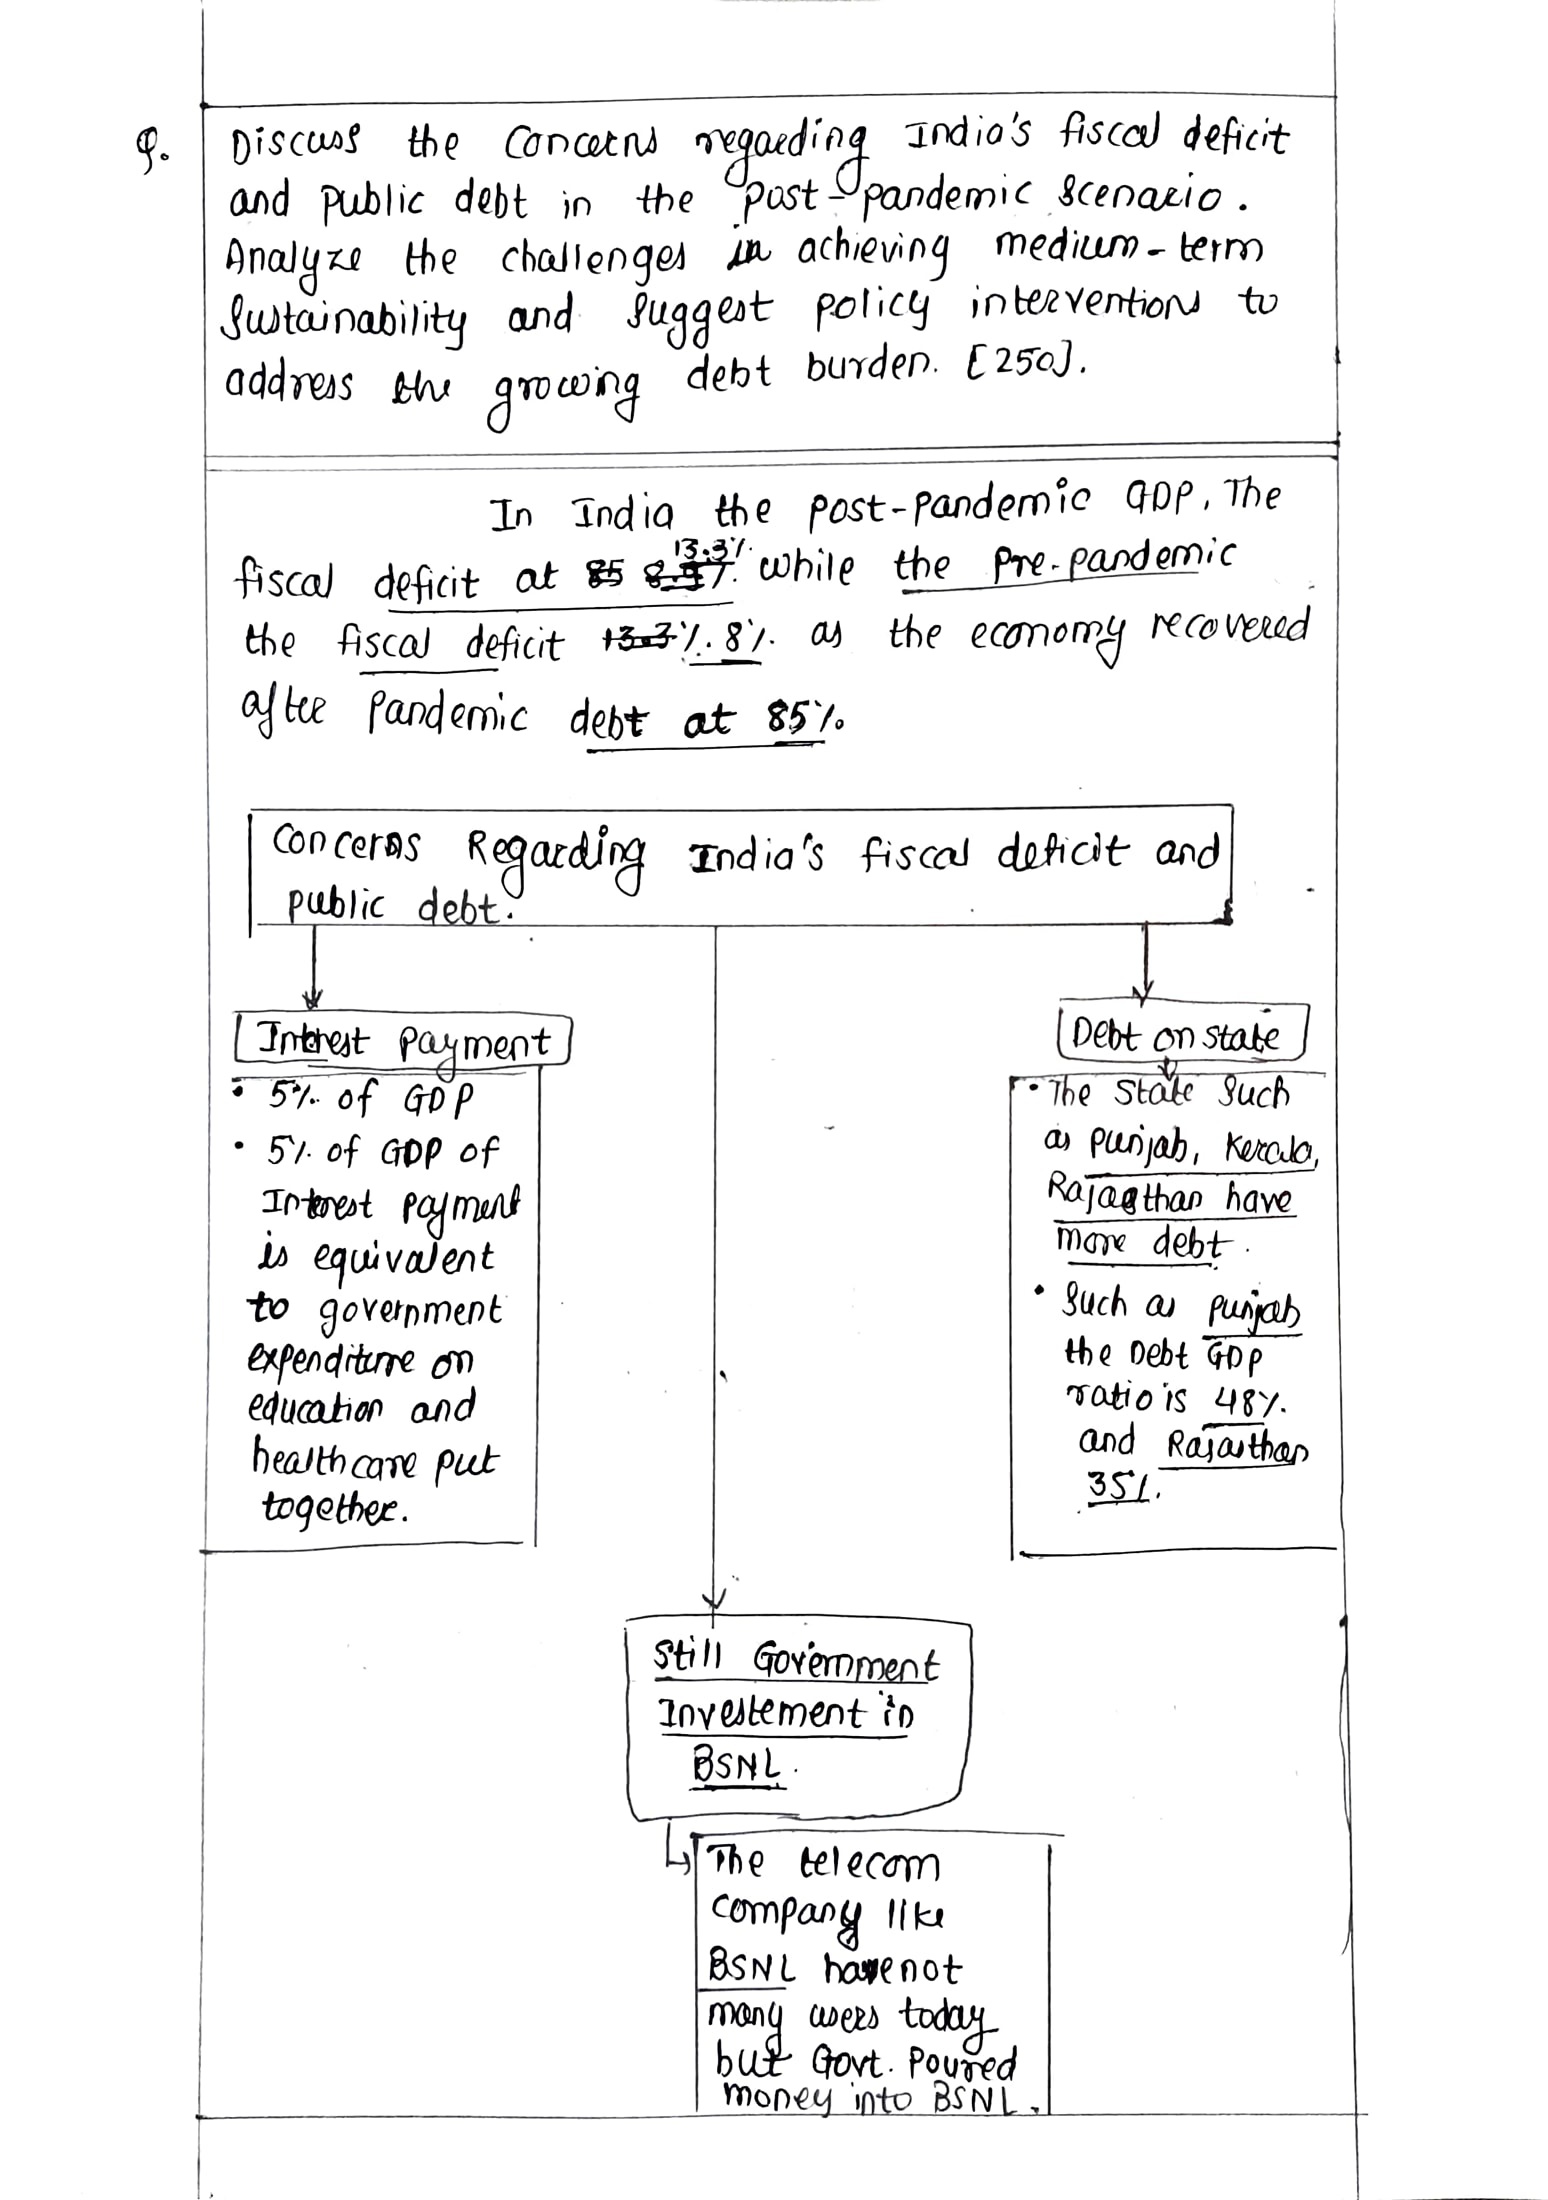 Q.
Discuss the concerns regarding India's fiscal deficit
and public debt in the post-pandemic scenario.
Analyze the challenges in achieving medium-term
sustainability and suggest policy interventions to
address the growing debt burden. [250].
In India the post-pandemic GDP, The
13.3%.
fiscal deficit at 85 8.9%. while the Pre-pandemic
the fiscal deficit 13.3%. 8%. as the economy recovered
after pandemic debt at 85%.
Concerns Regarding India's fiscal deficit and
public debt.
Interest Payment
• 5% of GDP
• 5% of GDP of
Interest payment
is equivalent
to government
expenditure on
education and
healthcare put
together.
Debt on state
• The State such
as punjab, Kerala,
Rajasthan have
more debt.
• Such as punjab
the Debt GDP
ratio is 48%.
and Rajasthan
35%.
Still Government
Investement in
BSNL.
The telecom
company like
BSNL have not
many users today
but Govt. Poured
money into BSNL.